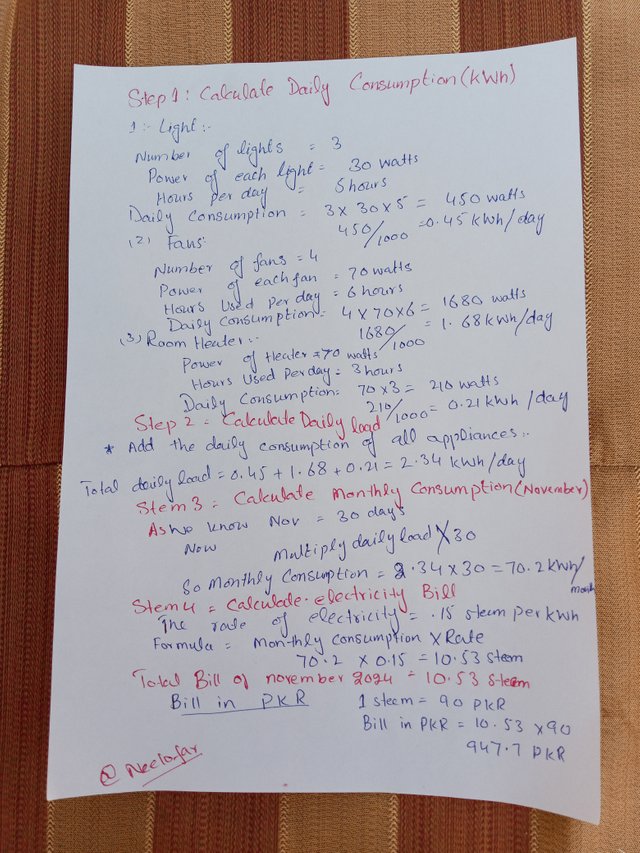 Step 1: Calculate Daily Consumption (kWh)
1:- Light:-
Number of lights = 3
Power of each light = 30 watts
Hours per day = 5 hours
Daily Consumption = 3 x 30 x 5 = 450 watts
450/1000 = 0.45 kWh/day
(2) Fans:
Number of fans = 4
Power of each fan = 70 watts
Hours Used Per day = 6 hours
Daily Consumption = 4 x 70 x 6 = 1680 watts
1680/1000 = 1.68 kWh/day
(3) Room Heater:-
Power of Heater = 70 watts
Hours Used Per day = 3 hours
Daily Consumption = 70 x 3 = 210 watts
210/1000 = 0.21 kWh/day
Step 2 = Calculate Daily load
* Add the daily consumption of all appliances:-
Total daily load = 0.45 + 1.68 + 0.21 = 2.34 kWh/day
Stem 3 = Calculate Monthly Consumption (November)
As we know Nov = 30 days
Now Multiply daily load X 30
So Monthly Consumption = 2.34 x 30 = 70.2 kWh/month
Stem 4 = Calculate electricity Bill
The rate of electricity = .15 steem per kWh
Formula = Monthly consumption X Rate
70.2 x 0.15 = 10.53 Steem
Total Bill of november 2024 = 10.53 Steem
Bill in PKR
1 steem = 90 PKR
Bill in PKR = 10.53 x 90
947.7 PKR
@Neelofar